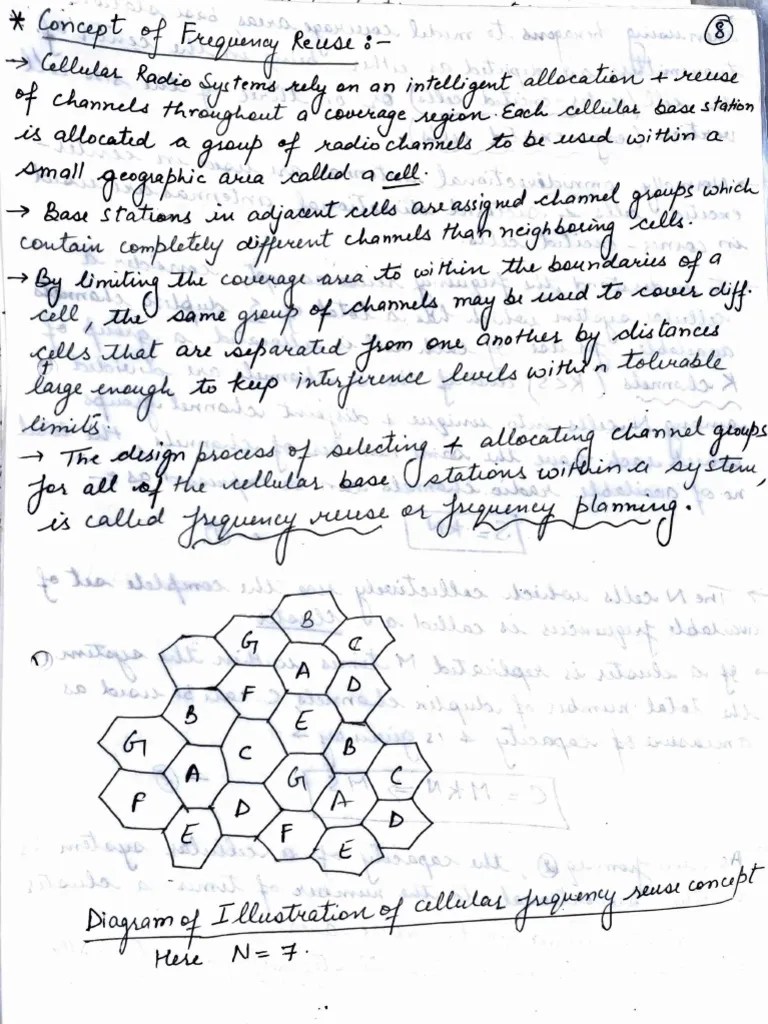 * Concept of Frequency Reuse :-
8
→ Cellular Radio Systems rely on an intelligent allocation + reuse
of channels throughout a coverage region. Each cellular base station
is allocated a group of radio channels to be used within a
small geographic area called a cell.
→ Base stations in adjacent cells are assigned channel groups which
contain completely different channels than neighboring cells.
→ By limiting the coverage area to within the boundaries of a
cell, the same group of channels may be used to cover diff.
cells that are separated from one another by distances
large enough to keep interference levels within tolerable
limits.
→ The design process of selecting + allocating channel groups
for all of the cellular base stations within a system,
is called frequency reuse or frequency planning.
B
G C
A
F D
B E
G C B
A G C
F D A
E F D
E
Diagram of Illustration of cellular frequency reuse concept
Here N = 7.